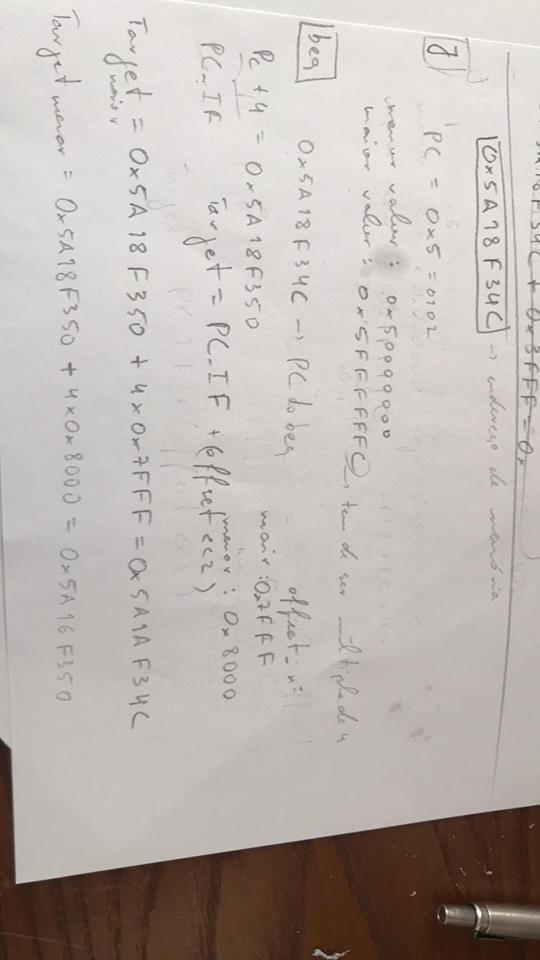 A18F34C + 0x3FFF = 0x
0x5A18F34C → endereço de memória
J PC = 0x5 = 0102
menor valor: 0x50000000
maior valor: 0x5FFFFFFC → tem de ser múltiplo de 4
beq 0x5A18F34C → PC do beq offset
PC + 4 = 0x5A18F350 maior: 0x7FFF
PC_IF Target = PC_IF + (offset << 2) menor: 0x8000
Target maior = 0x5A18F350 + 4x0x7FFF = 0x5A1AF34C
Target menor = 0x5A18F350 + 4x0x8000 = 0x5A16F350